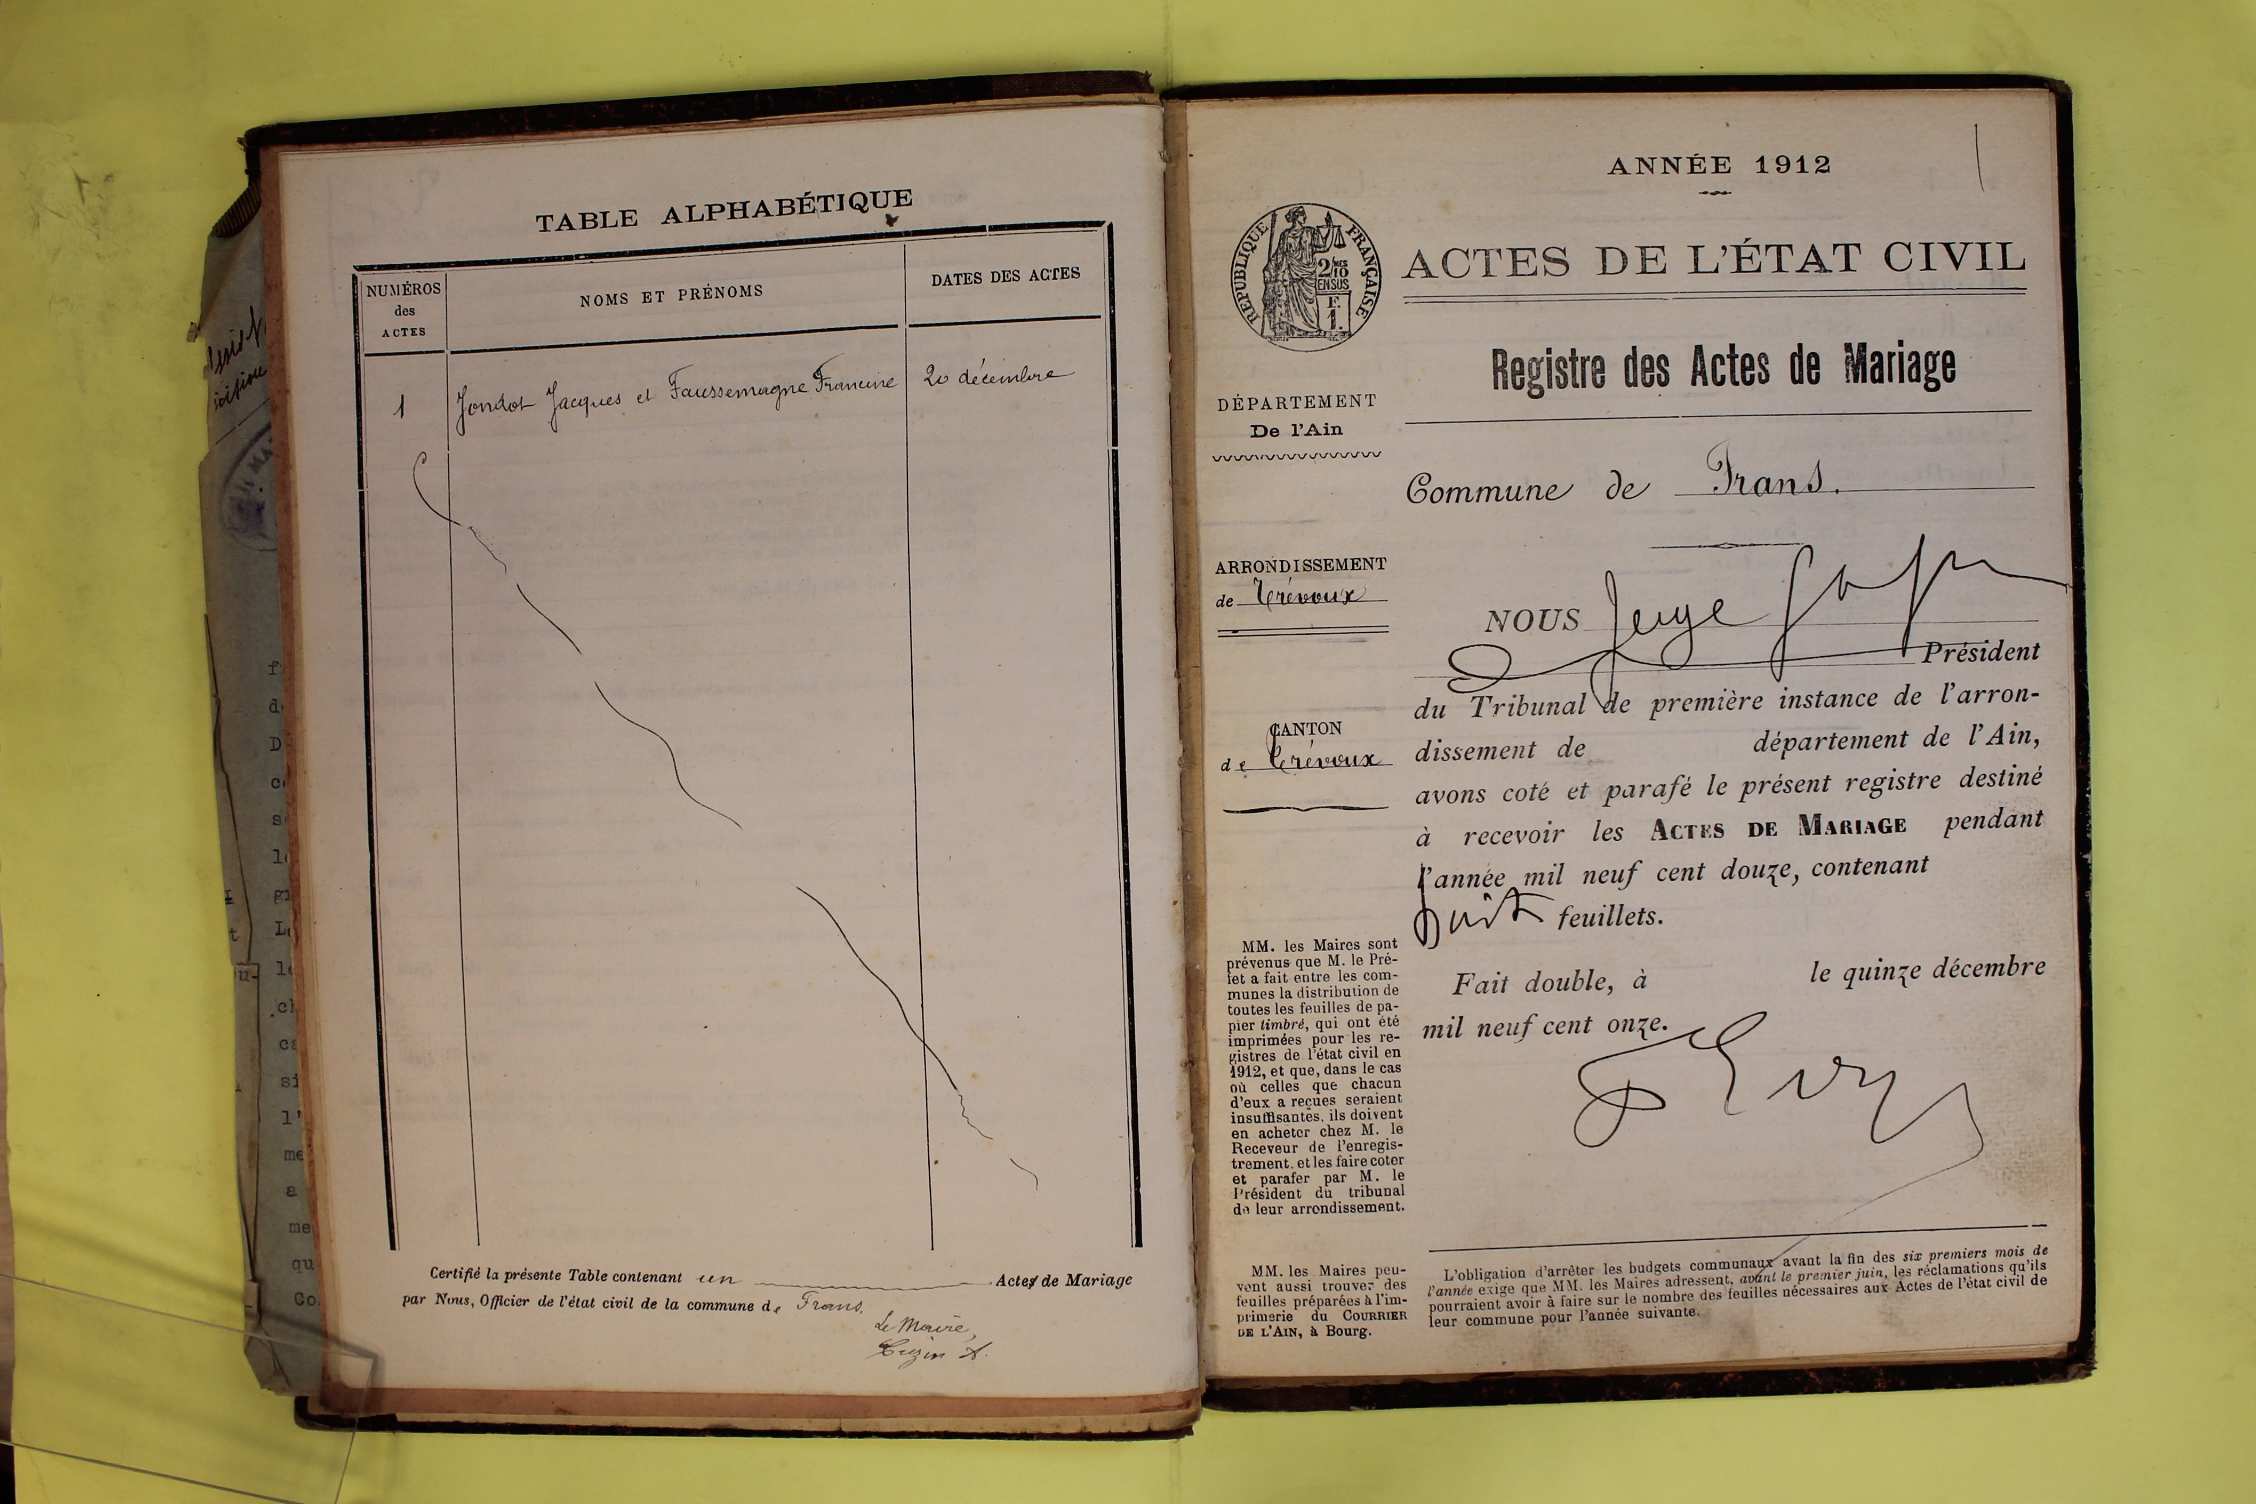 TABLE ALPHABÉTIQUE
NUMÉROS
des
ACTES
NOMS ET PRÉNOMS
DATES DES ACTES
1 Jondot Jacques et Faussemagne Francine 20 décembre
Certifié la présente Table contenant un Actes de Mariage
par Nous, Officier de l'état civil de la commune de Frans.
Le Maire,
Cuzin A.
ANNÉE 1912
RÉPUBLIQUE FRANÇAISE
2/10
EN SUS
F.
1.
ACTES DE L'ÉTAT CIVIL
Registre des Actes de Mariage
DÉPARTEMENT
De l'Ain
Commune de Frans.
ARRONDISSEMENT
de Trévoux
CANTON
de Trévoux
NOUS
Président
du Tribunal de première instance de l'arron-
dissement de département de l'Ain,
avons coté et parafé le présent registre destiné
à recevoir les ACTES DE MARIAGE pendant
l'année mil neuf cent douze, contenant
huit feuillets.
Fait double, à le quinze décembre
mil neuf cent onze.
MM. les Maires sont
prévenus que M. le Pré-
fet a fait entre les com-
munes la distribution de
toutes les feuilles de pa-
pier timbré, qui ont été
imprimées pour les re-
gistres de l'état civil en
1912, et que, dans le cas
où celles que chacun
d'eux a reçues seraient
insuffisantes, ils doivent
en acheter chez M. le
Receveur de l'enregis-
trement, et les faire coter
et parafer par M. le
Président du tribunal
de leur arrondissement.
MM. les Maires peu-
vent aussi trouver des
feuilles préparées à l'im-
primerie du COURRIER
DE L'AIN, à Bourg.
L'obligation d'arrêter les budgets communaux avant la fin des six premiers mois de
l'année exige que MM. les Maires adressent, avant le premier juin, les réclamations qu'ils
pourraient avoir à faire sur le nombre des feuilles nécessaires aux Actes de l'état civil de
leur commune pour l'année suivante.